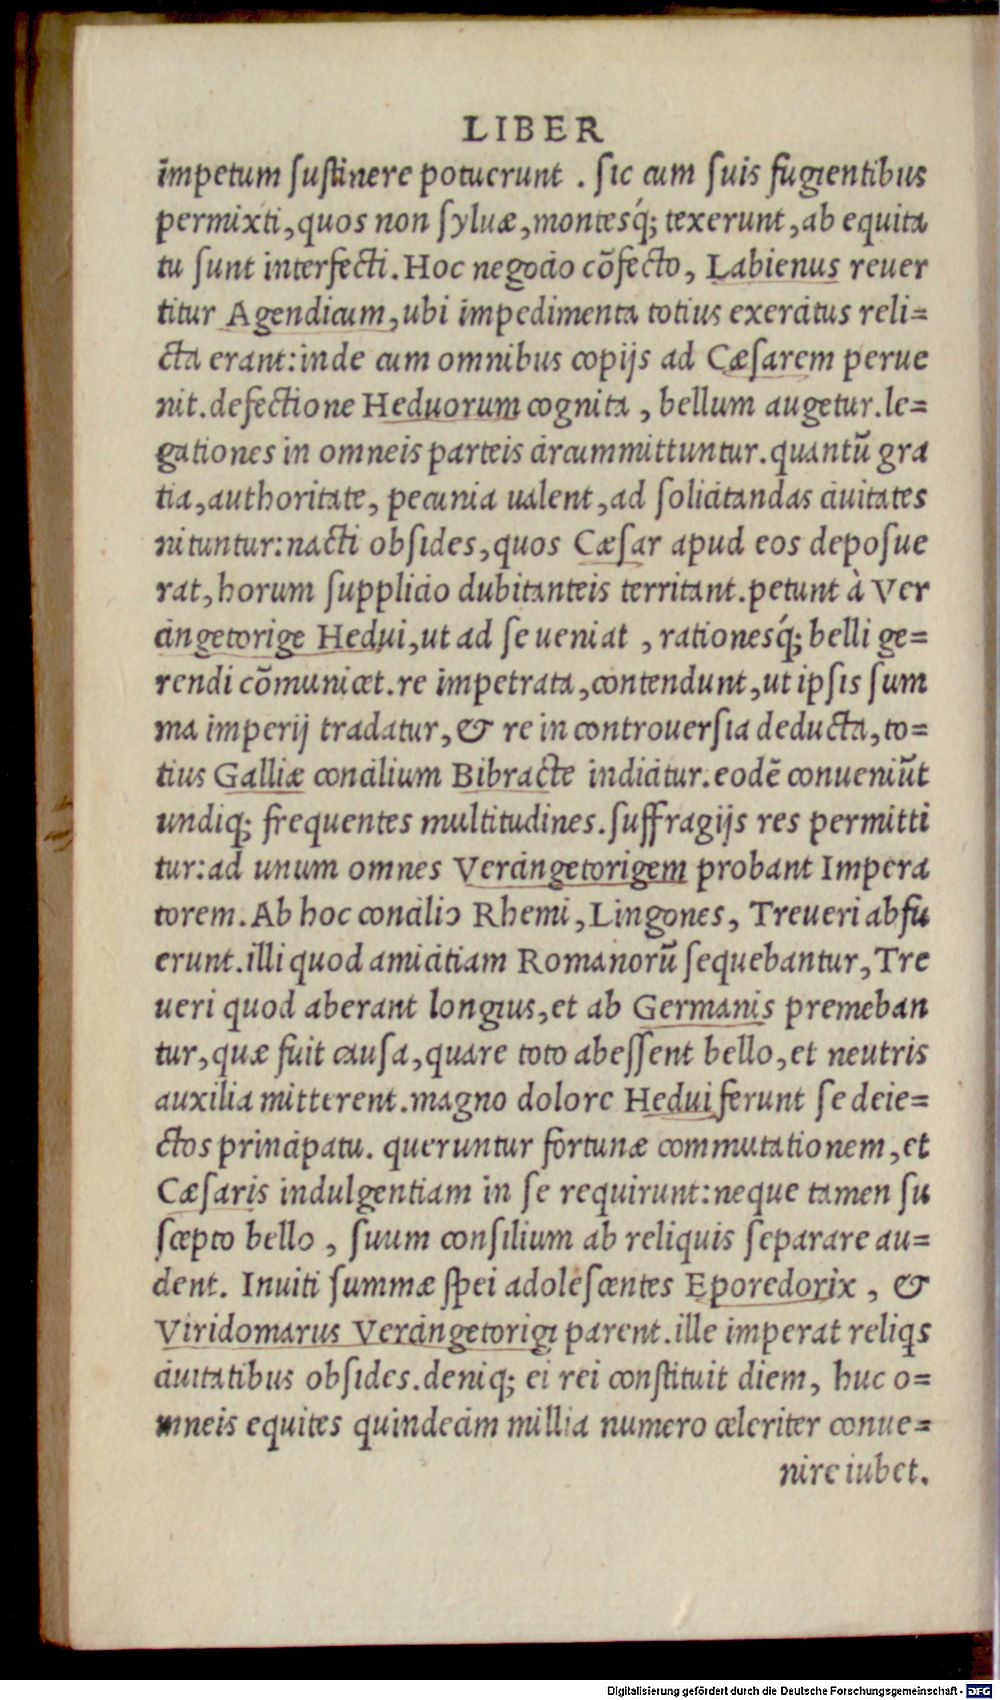 LIBER
impetum sustinere potuerunt . sic cum suis fugientibus
permixti, quos non syluæ, montesq́; texerunt, ab equita
tu sunt interfecti. Hoc negocio cõfecto, Labienus reuer
titur Agendicum, ubi impedimenta totius exercitus reli=
cta erant: inde cum omnibus copijs ad Cæsarem perue
nit. defectione Heduorum cognita , bellum augetur. le=
gationes in omneis parteis circummittuntur. quantũ gra
tia, authoritate, pecunia ualent, ad solicitandas ciuitates
nituntur: nacti obsides, quos Cæsar apud eos deposue
rat, horum supplicio dubitanteis territant. petunt à Ver
cingetorige Hedui, ut ad se ueniat , rationesq́; belli ge=
rendi cõmunicet. re impetrata, contendunt, ut ipsis sum
ma imperij tradatur, & re in controuersia deducta, to=
tius Galliæ concilium Bibracte indicitur. eodẽ conueniũt
undiq; frequentes multitudines. suffragijs res permitti
tur: ad unum omnes Vercingetorigem probant Impera
torem. Ab hoc concilio Rhemi, Lingones, Treueri abfu
erunt. illi quod amicitiam Romanorũ sequebantur, Tre
ueri quod aberant longius, et ab Germanis premeban
tur, quæ fuit causa, quare toto abessent bello, et neutris
auxilia mitterent. magno dolore Hedui ferunt se deie=
ctos principatu. queruntur fortunæ commutationem, et
Cæsaris indulgentiam in se requirunt: neque tamen su
scepto bello , suum consilium ab reliquis separare au=
dent. Inuiti summæ spei adolescentes Eporedorix , &
Viridomarus Vercingetorigi parent. ille imperat reliqs
ciuitatibus obsides. deniq; ei rei constituit diem, huc o=
mneis equites quindecim millia numero celeriter conue=
nire iubet.
Digitalisierung gefördert durch die Deutsche Forschungsgemeinschaft - DFG